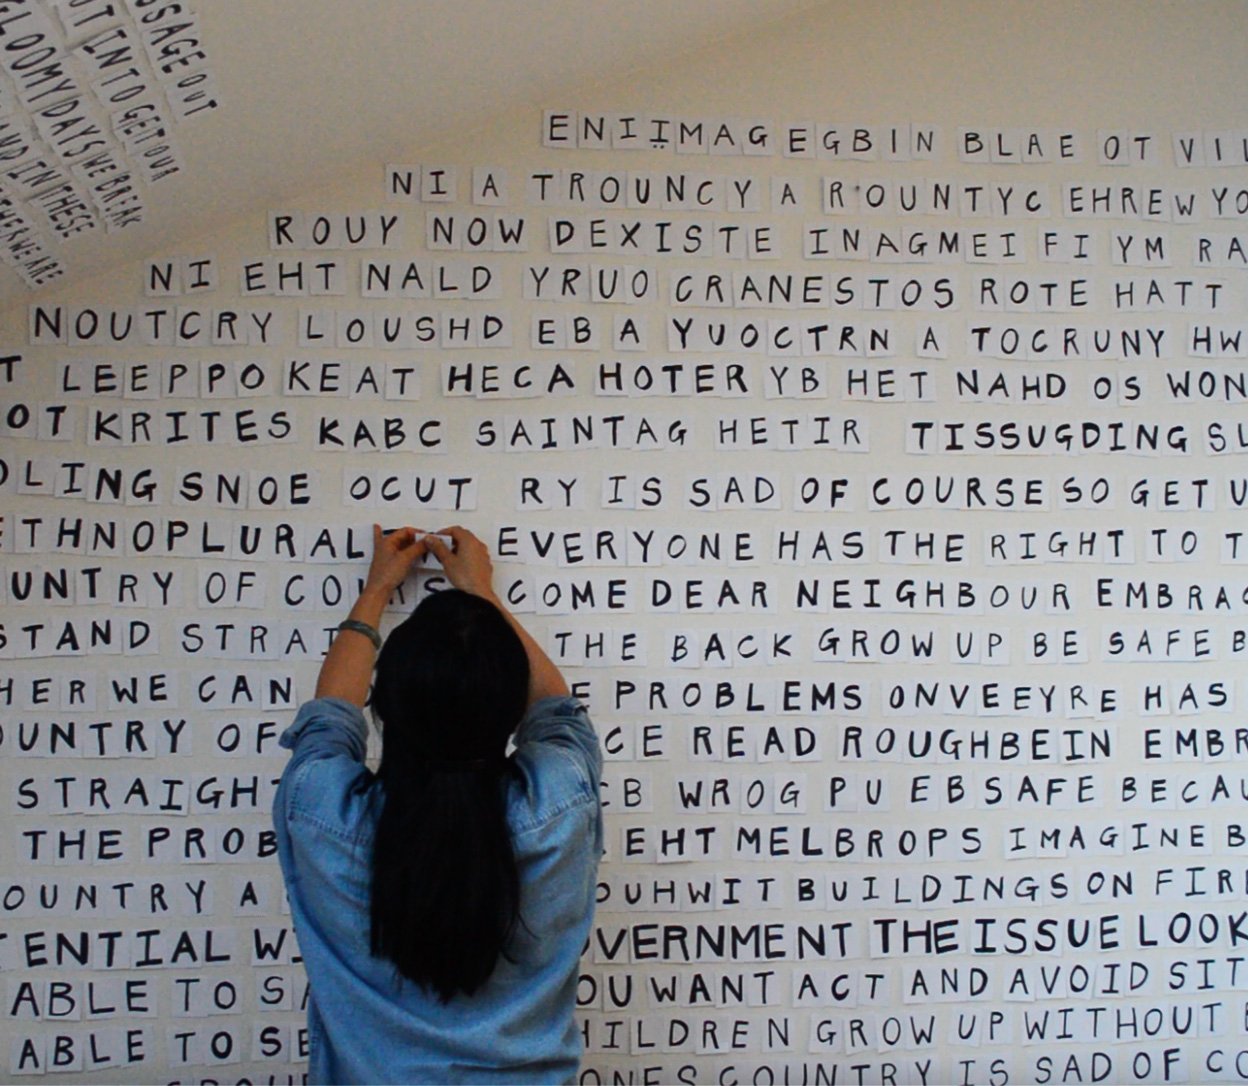 SSAGE OUT
UT INTO GET OUR
GLOOMY DAYS WE BREAK
AND IN THESE
THER WE ARE
ENIIMAG EGBIN BLAE OT VIL
NI A TROUNCY A ROUNTYC EHREW YO
ROUY NOW DEXISTE INAGMEI FI YM RA
NI EHT NALD YRUO CRANESTOS ROTE HATT
NOUTCRY LOUSHD EB A YUOCTRN A TOCRUNY HW
T LEEPPO KEAT HECA HOTER YB HET NAHD OS WON
OT KRITES KABC SAINTAG HETIR TISSUGDING SL
OLING SNOE OCUT RY IS SAD OF COURSE SO GET U
ETHNOPLURAL EVERYONE HAS THE RIGHT TO T
UNTRY OF COURS COME DEAR NEIGHBOUR EMBRAC
STAND STRAI THE BACK GROW UP BE SAFE B
HER WE CAN E PROBLEMS ONVEEYRE HAS
OUNTRY OF CE READ ROUGHBEIN EMBR
STRAIGHT CB WROG PU EB SAFE BECAU
THE PROB EHT MELBROPS IMAGINE B
OUNTRY A OUHWIT BUILDINGS ON FIRE
TENTIAL WI OVERNMENT THE ISSUE LOOK
ABLE TO SA OU WANT ACT AND AVOID SIT
ABLE TO SE HILDREN GROW UP WITHOUT E
ONES COUNTRY IS SAD OF CO